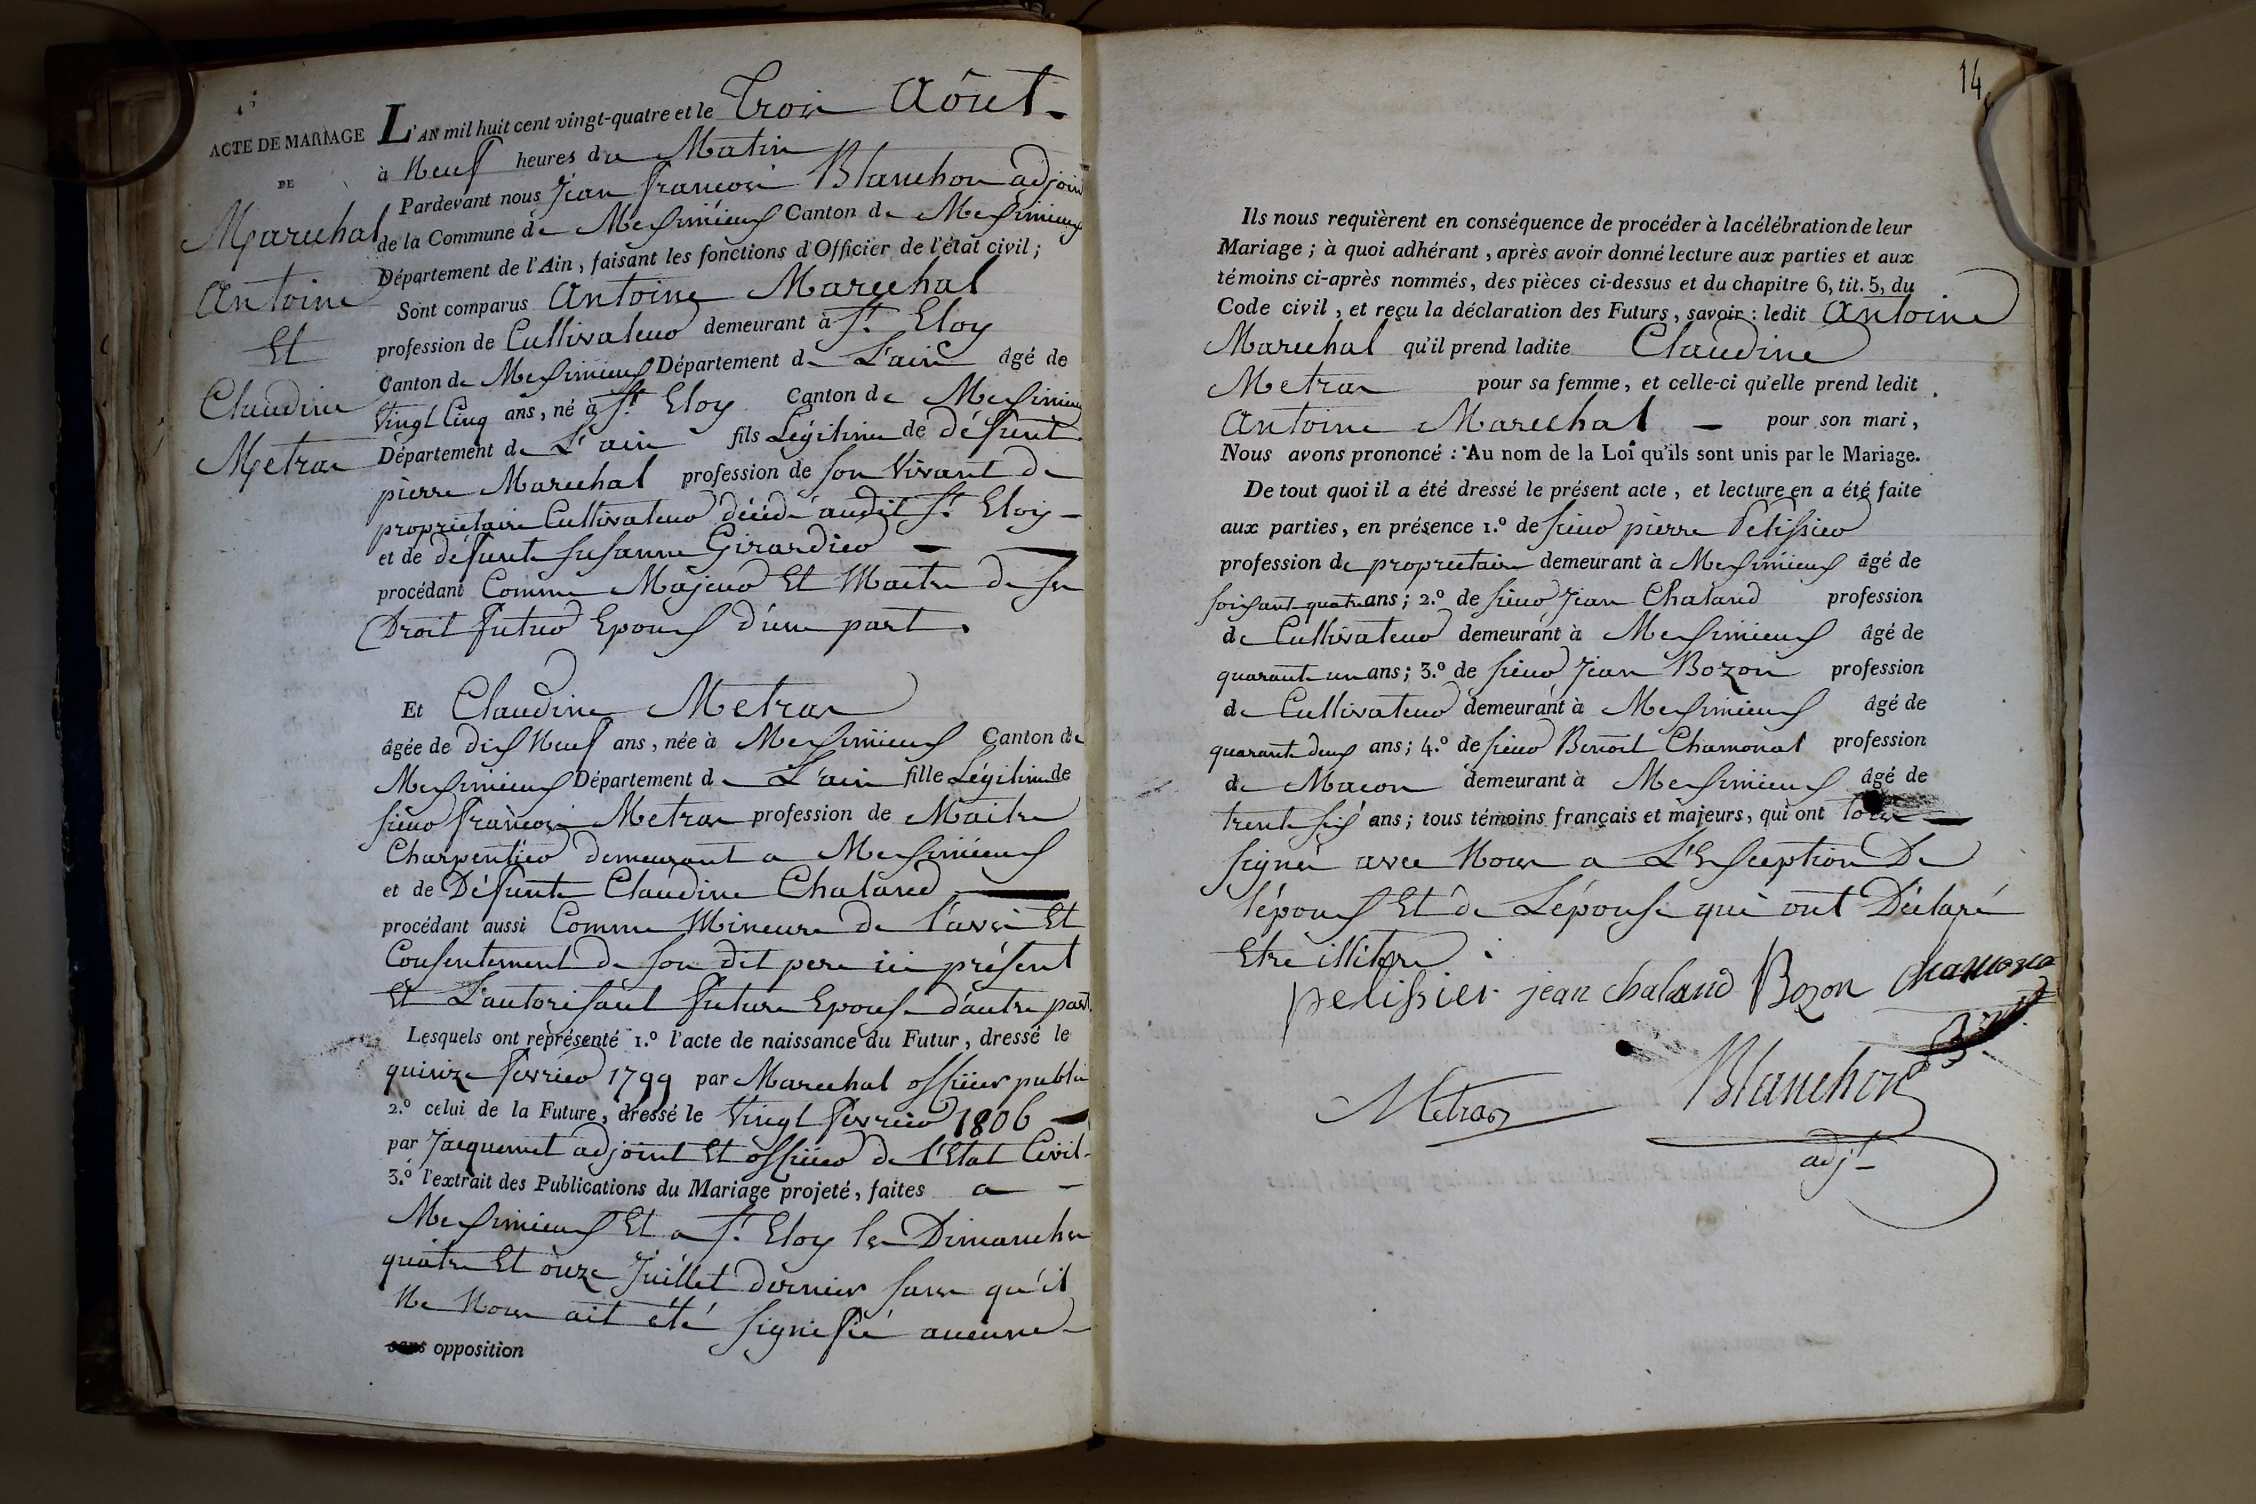 ACTE DE MARIAGE
DE
Marechal
Antoine
Et
Claudine
Metras
L'AN mil huit cent vingt-quatre et le Trois Aôut
à Neuf heures du Matin
Pardevant nous Jean françois Blanchon adjoint
de la Commune de Messimieux Canton de Messimieux
Département de l'Ain, faisant les fonctions d'Officier de l'état civil;
Sont comparus Antoine Marechal
profession de Cultivateur demeurant à St. Eloy
Canton de Messimieux Département de L'ain âgé de
Vingt Cinq ans, né à St. Eloy Canton de Messimieux
Département de L'ain fils Légitime de défunt
pierre Marechal profession de son Vivant de
propriétaire Cultivateur décédé audit St. Eloy
et de défunte Susanne Girardier
procédant Comme Majeur Et Maitre de ses
Droit futur Epoux d'une part.
Et Claudine Metras
âgée de dix Neuf ans, née à Messimieux Canton de
Messimieux Département de L'ain fille Légitime de
sieur françois Metras profession de Maitre
Charpentier demeurant a Messimieux
et de Défunte Claudine Chaland
procédant aussi Comme Mineure de l'avis Et
Consentement de son dit pere ici présent
Et L'autorisant future Epouse d'autre part.
Lesquels ont représenté 1.º l'acte de naissance du Futur, dressé le
quinze fevrier 1799 par Marechal officier public
2.º celui de la Future, dressé le Vingt fevrier 1806
par Jacquemet adjoint Et officier de l'Etat Civil
3.º l'extrait des Publications du Mariage projeté, faites a
Messimieux Et a St. Eloy les Dimanches
quatre Et onze Juillet dernier sans qu'il
Ne Nous ait été signifié aucune
sans opposition
14
Ils nous requièrent en conséquence de procéder à la célébration de leur
Mariage; à quoi adhérant, après avoir donné lecture aux parties et aux
témoins ci-après nommés, des pièces ci-dessus et du chapitre 6, tit. 5, du
Code civil, et reçu la déclaration des Futurs, savoir: ledit Antoine
Marechal qu'il prend ladite Claudine
Metras pour sa femme, et celle-ci qu'elle prend ledit
Antoine Marechal pour son mari,
Nous avons prononcé: Au nom de la Loi qu'ils sont unis par le Mariage.
De tout quoi il a été dressé le présent acte, et lecture en a été faite
aux parties, en présence 1.º de sieur pierre Pelissier
profession de proprietaire demeurant à Messimieux âgé de
soixant quatre ans; 2.º de sieur Jean Chaland profession
de Cultivateur demeurant à Messimieux âgé de
quarante un ans; 3.º de sieur Jean Bozon profession
de Cultivateur demeurant à Messimieux âgé de
quarante deux ans; 4.º de sieur Benoit Chamonal profession
de Macon demeurant à Messimieux âgé de
trente six ans; tous témoins français et majeurs, qui ont tous
signés avec Nous a L'Exception De
l'époux Et de L'épouse qui ont Déclaré
Etre illitere.
pelissier jean chaland Bozon
Metras Blanchon
adjt